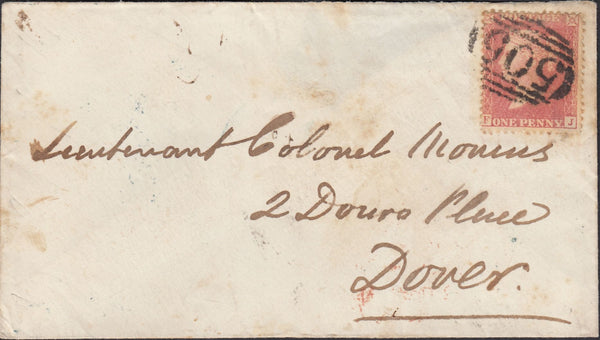 ONE PENNY
F J
Lieutenant Colonel
2 Douro Place
Dover.